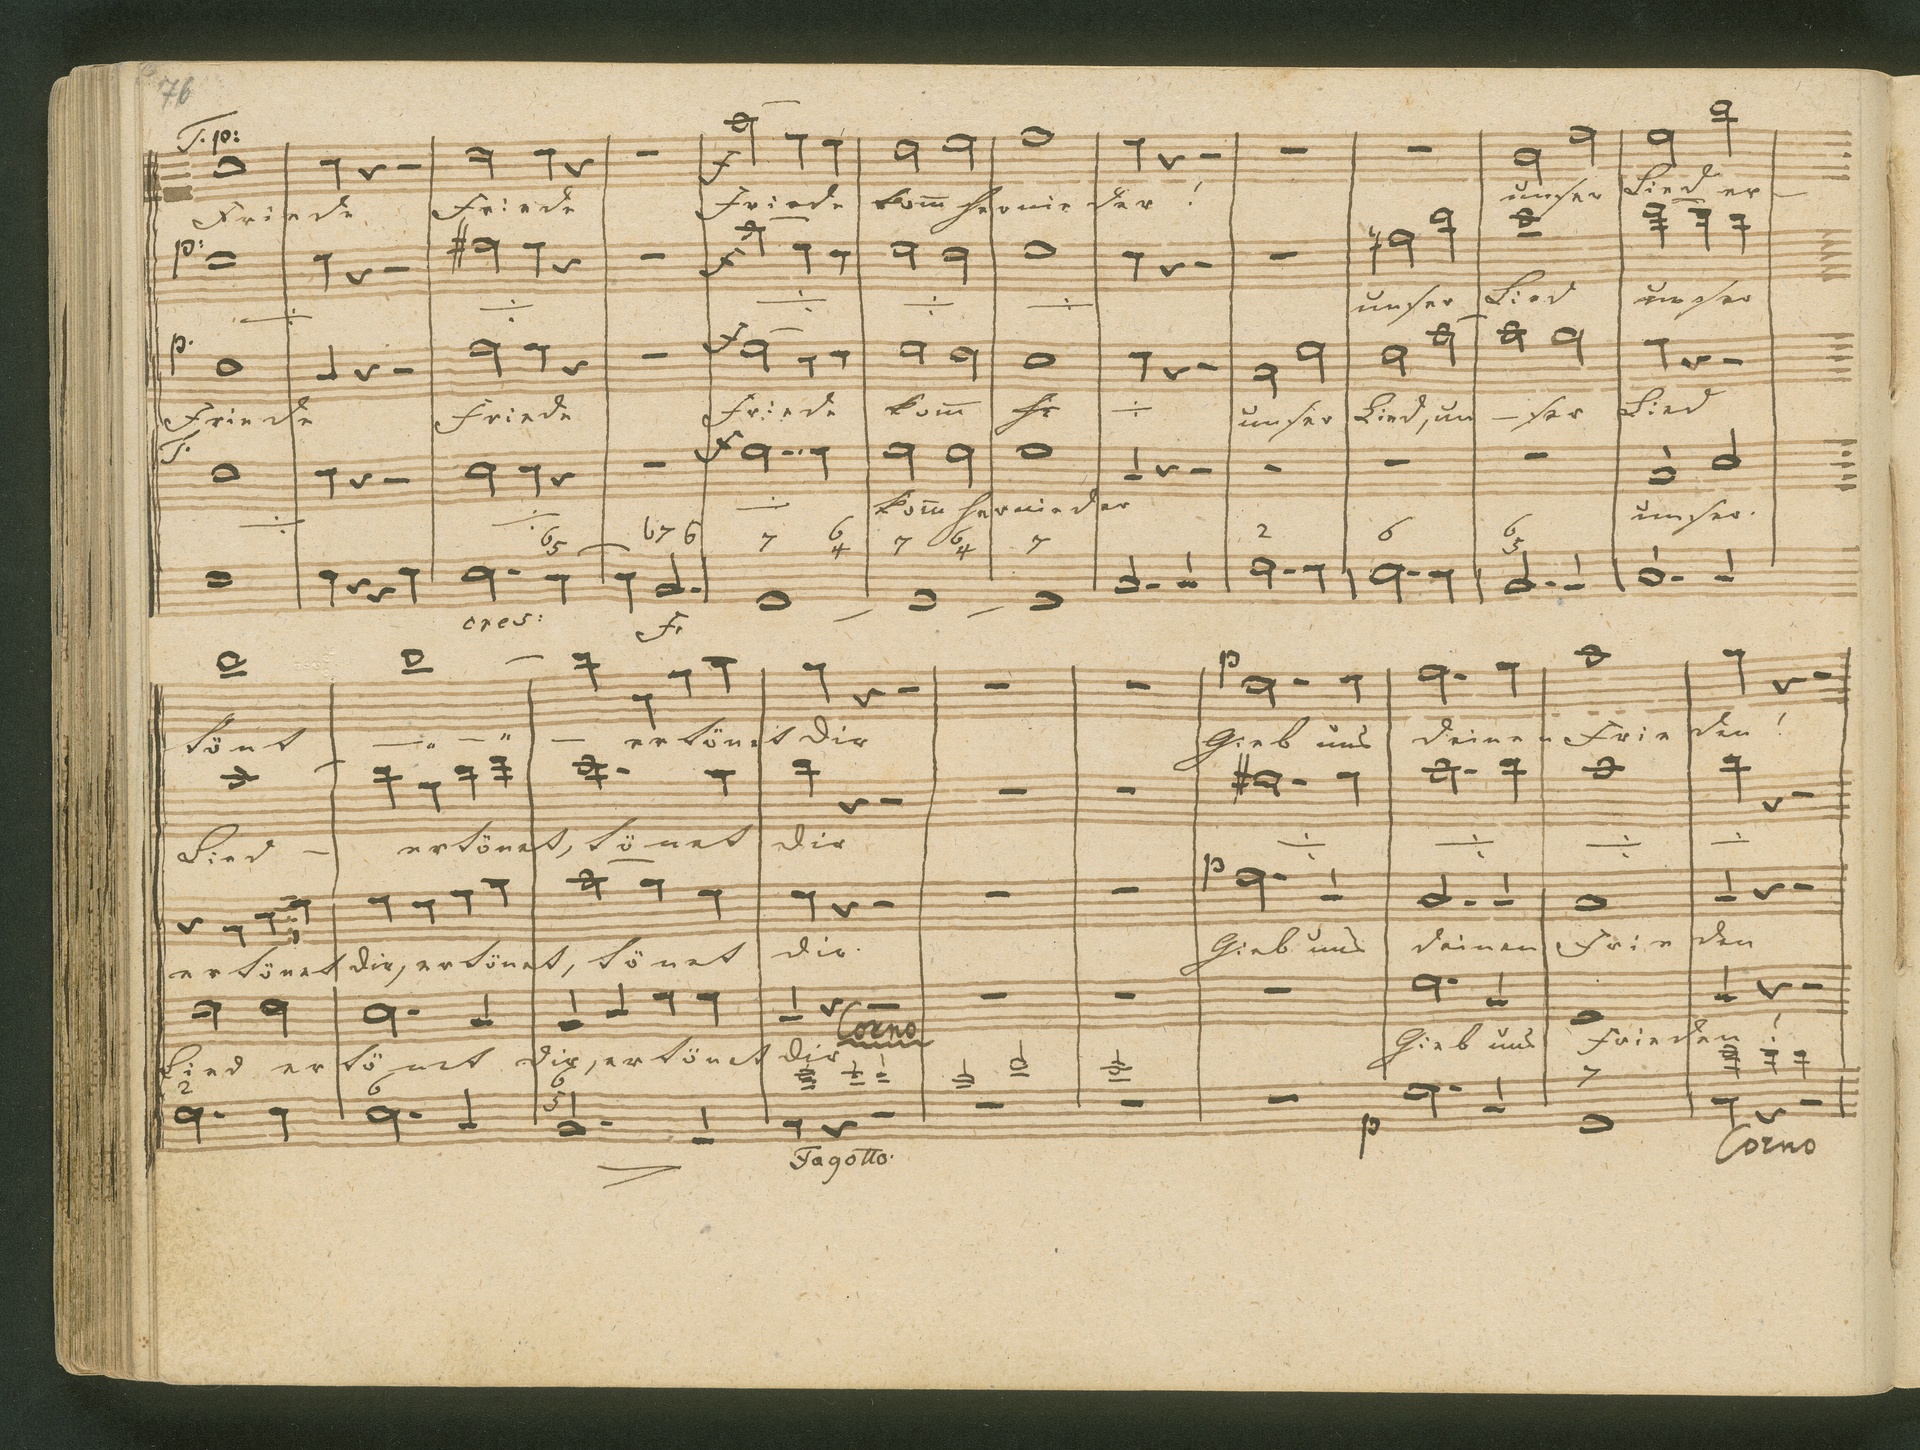 76
T. p:
Friede Friede f Friede kom̄ hernieder! unser Lied er-
p: f
unser Lied unser
p. f
Friede Friede Friede kom̄ hr unser Lied, un- ser Lied
T. f
kom̄ hernieder unser.
6 5 6 7 6 7 6 4 7 6 4 7 2 6 6 5
cres: f.
p
tönt — — — ertönet dir Gieb uns deinen Frieden!
Lied — ertönet, tönet dir
p
ertönet dir, ertönet, tönet dir. Gieb uns deinen Frieden
Corno
Lied ertönet dir, ertönet dir Gieb uns Frieden!
2 6 6 5 7
p
Fagotto. Corno